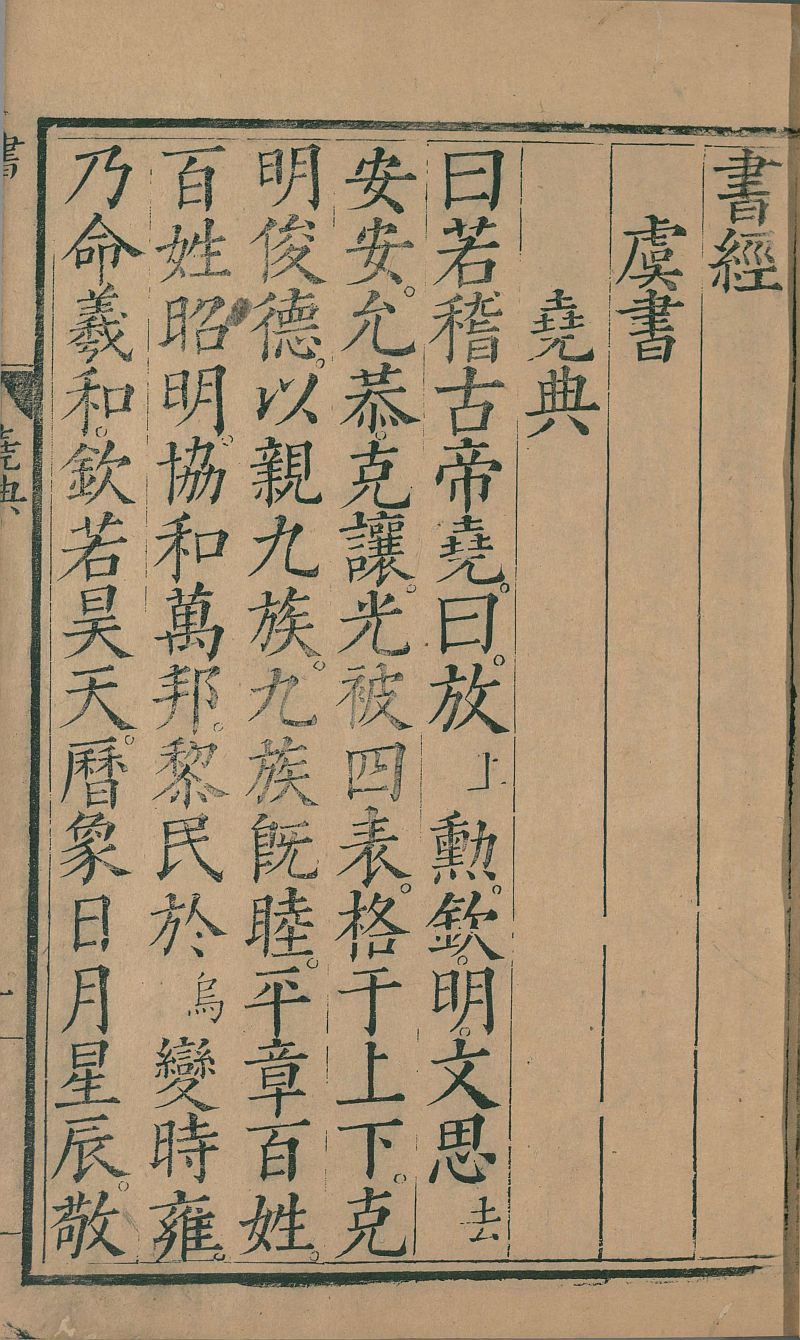 書經
虞書
堯典
曰若稽古帝堯。曰。放上勳。欽。明。文思去
安安。允恭。克讓。光被四表。格于上下。克
明俊德。以親九族。九族旣睦。平章百姓。
百姓昭明。協和萬邦。黎民於烏變時雍。
乃命羲和。欽若昊天。曆象日月星辰。敬
書
堯典